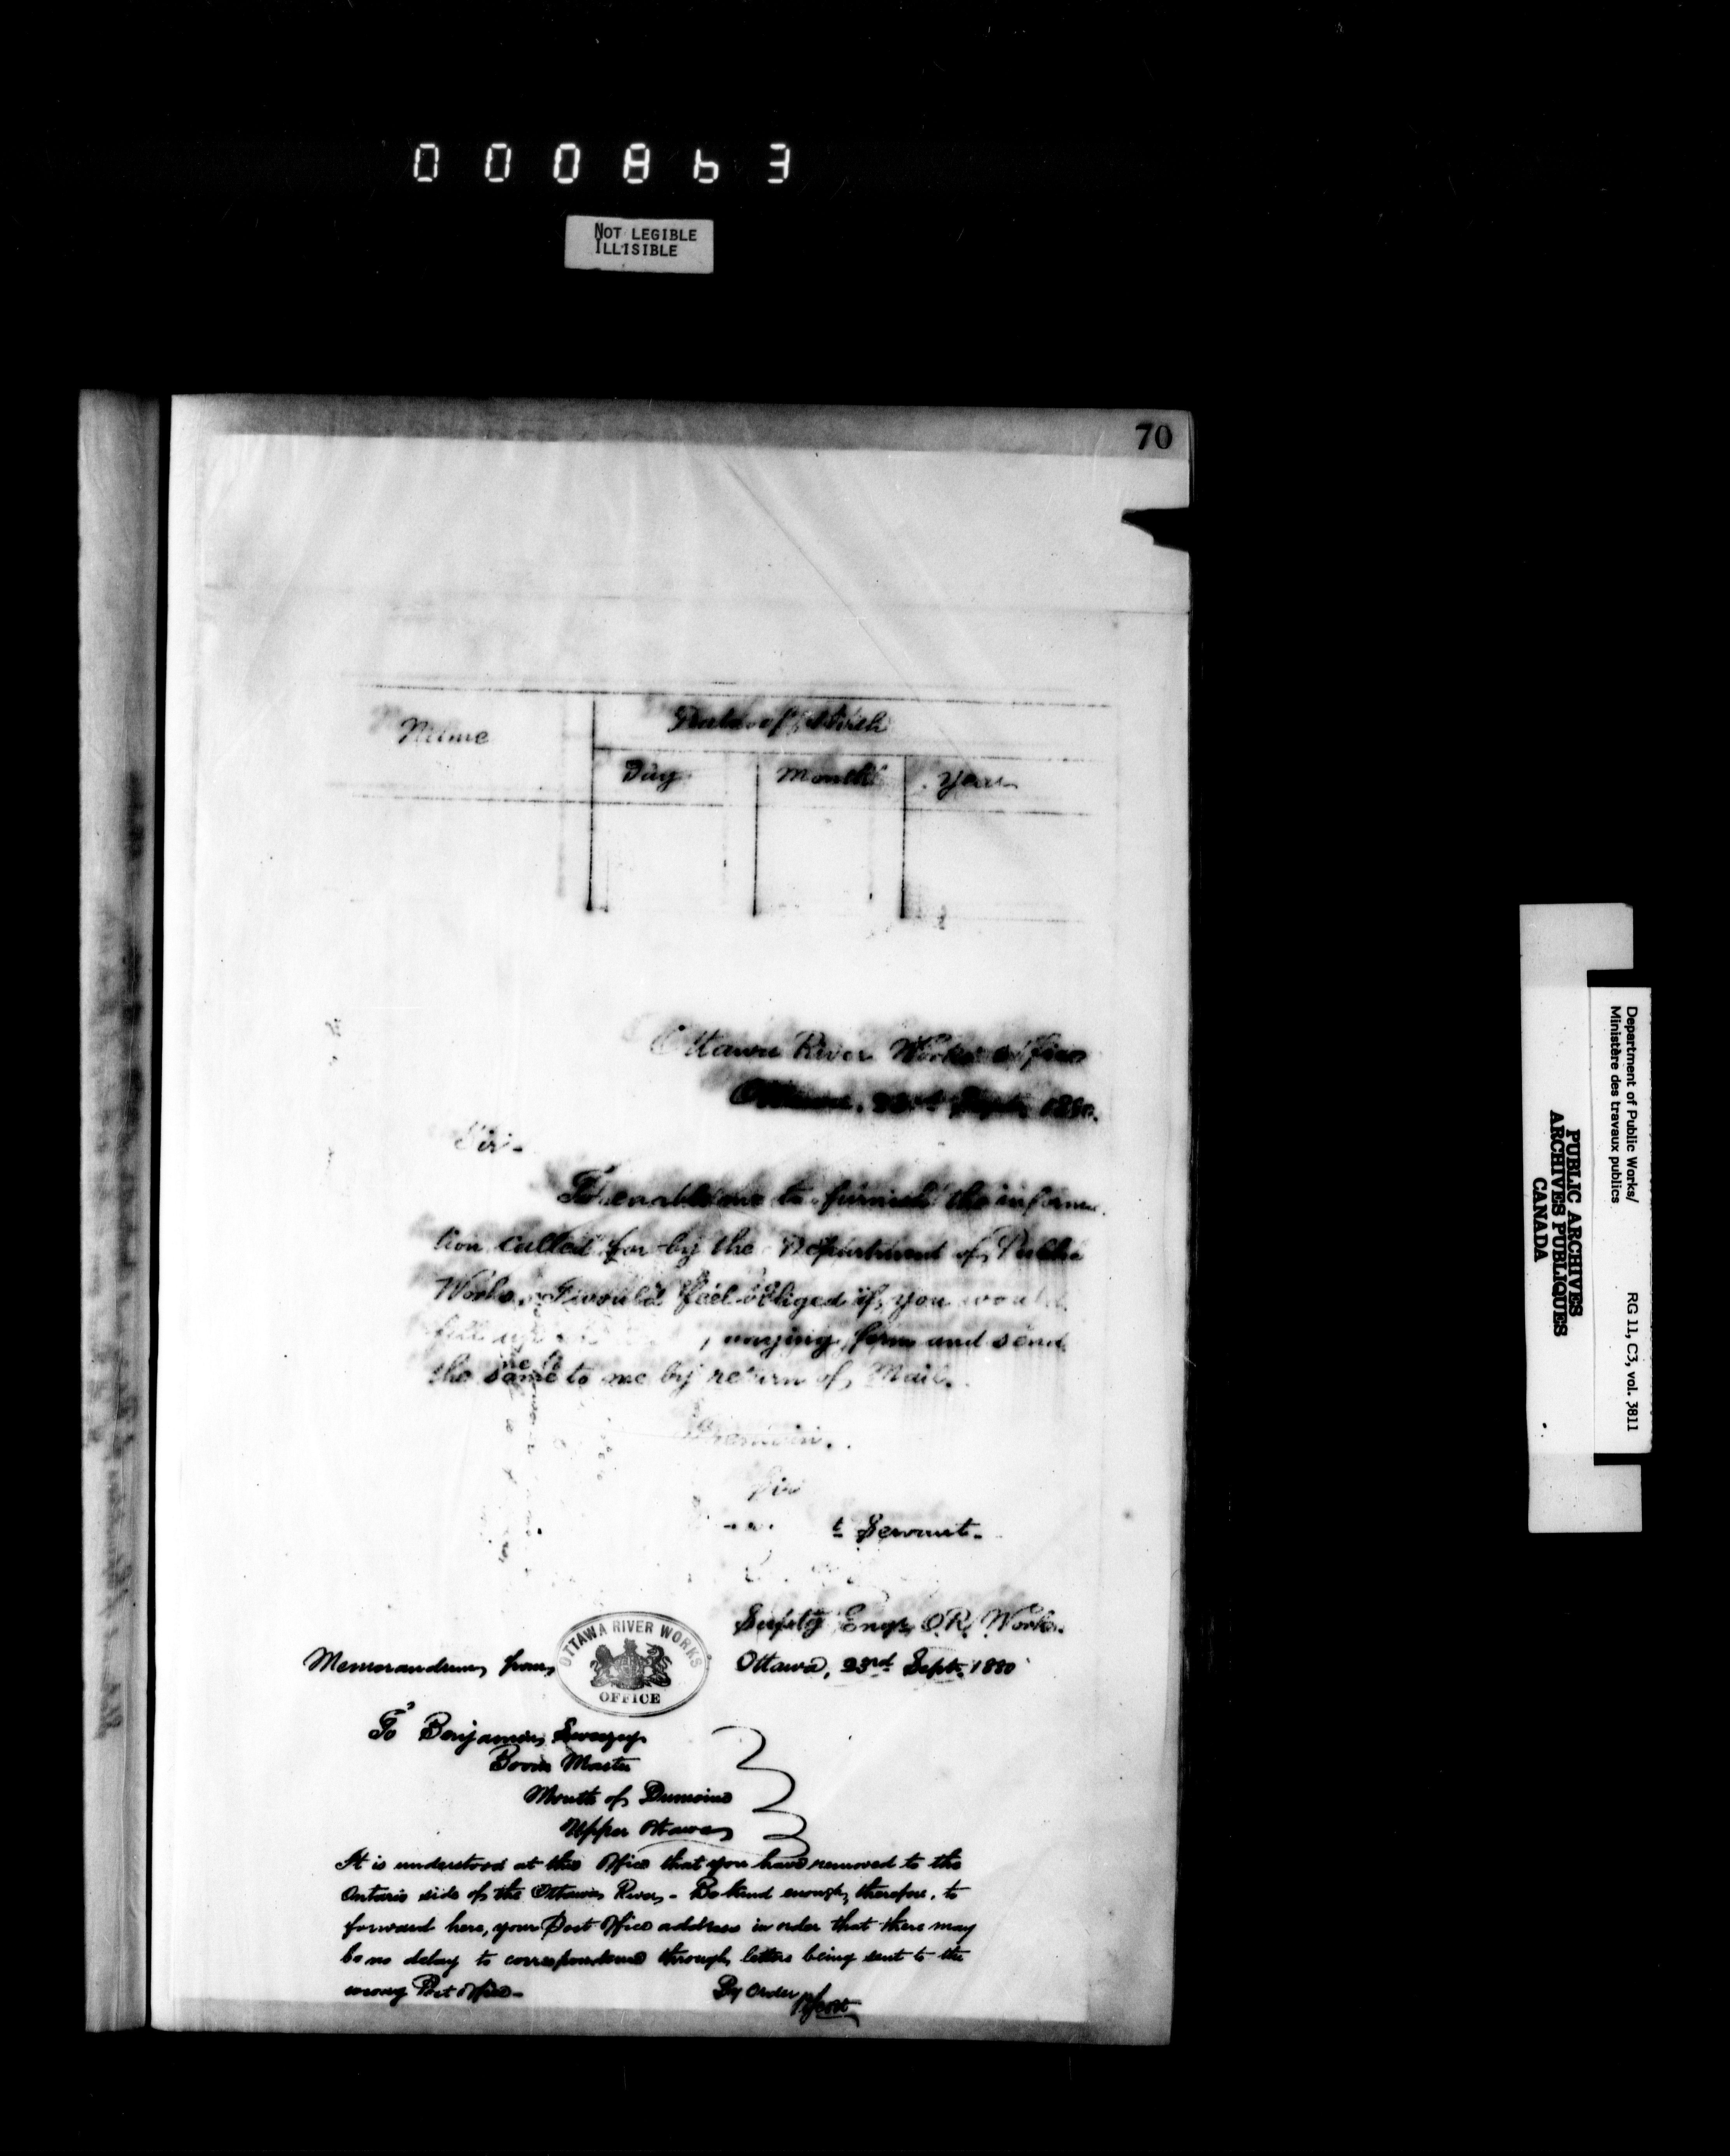 000863
NOT LEGIBLE
ILLISIBLE
70
Name
Date of Birth
Day
Month
Year
Ottawa River Works Office
Ottawa, 23rd Sept. 1880.
Sir.
To enable me to furnish the informa
tion called for by the Department of Public
Works, I would feel obliged if you would
fill up panying form and send
the same to me by return of Mail.
I remain.
Sir
t Servant.
Deputy Engr. O. R. Works.
Memorandum from
OTTAWA RIVER WORKS
OFFICE
Ottawa, 23rd Sept. 1880
To Benjamin Sweezey
Boom Master
Mouth of Dumoine
Upper Ottawa
It is understood at this Office that you have removed to the
Ontario side of the Ottawa River - Be kind enough, therefore, to
forward here, your Post Office address in order that there may
be no delay to correspondence through letters being sent to the
wrong Post Office -
By Order
Department of Public Works/
Ministère des travaux publics
RG 11, C3, vol. 3811
PUBLIC ARCHIVES
ARCHIVES PUBLIQUES
CANADA